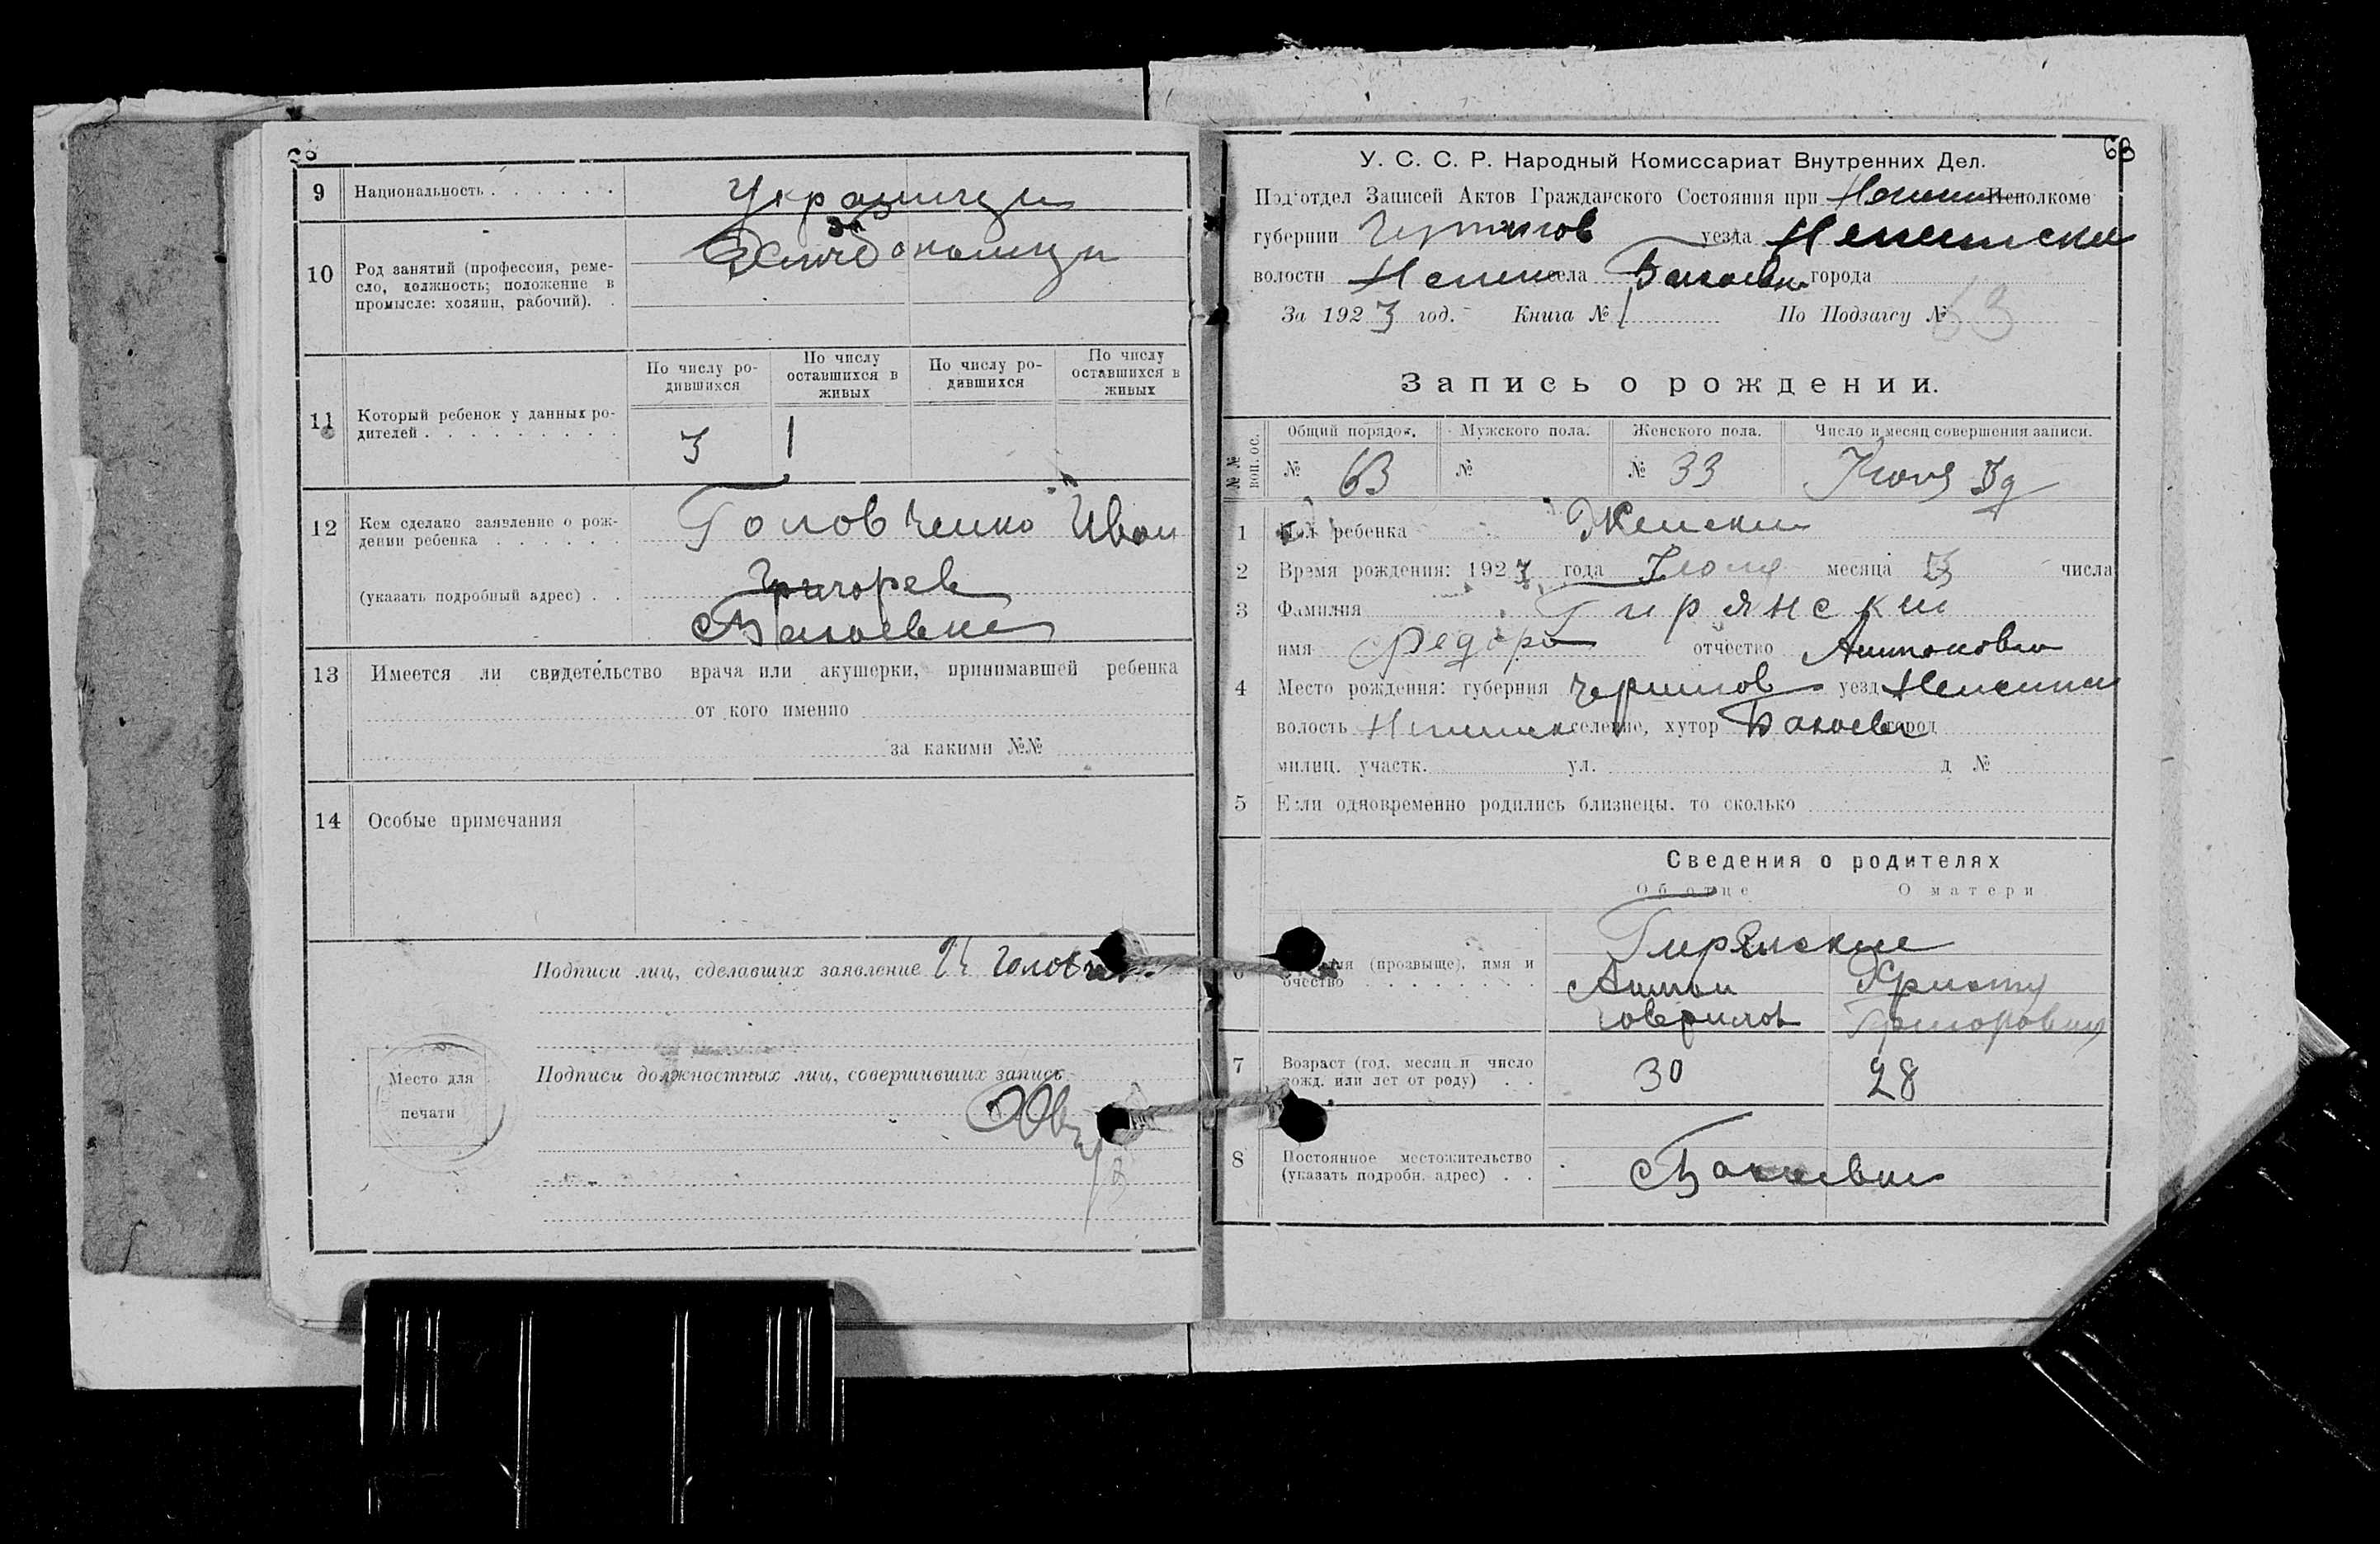 28
9 Национальность . . . . . . Украинцы
10 Род занятий (профессия, реме-
сло, должность; положение в
промысле: хозяин, рабочий). .
11 Который ребенок у данных ро-
дителей . . . . . . . . .
По числу ро-
дившихся
По числу
оставшихся в
живых
По числу ро-
дившихся
По числу
оставшихся в
живых
3 1
12 Кем сделано заявление о рож-
дении ребенка . . . . . . Головченко Иван
(указать подробный адрес) . . Григорев
13 Имеется ли свидетельство врача или акушерки, принимавшей ребенка
от кого именно
за какими №№
14 Особые примечания
Подписи лиц, сделавших заявление
Место для
печати
Подписи должностных лиц, совершивших запись
63
У. С. С. Р. Народный Комиссариат Внутренних Дел.
Под'отдел Записей Актов Гражданского Состояния при Исполкоме
губернии Чернигов уезда
волости села города
За 1923 год. Книга № 1 По Подзагсу № 63
Запись о рождении.
№№ воп. ос.
Общий порядок. Мужского пола. Женского пола. Число и месяц совершения записи.
№ 63 № № 33
1 Пол ребенка Женски
2 Время рождения: 1923 года месяца числа
3 Фамилия Гирянский
имя Федора отчество Антоновна
4 Место рождения: губерния Чернигов уезд
волость селение, хутор город
милиц. участк. ул. д №
5 Если одновременно родились близнецы, то сколько
Сведения о родителях
Об отце О матери
6 Фамилия (прозвыще), имя и
очество . . . . . . . . Гирянские
Антон
Говрилов
7 Возраст (год, месяц и число
рожд. или лет от роду) . . 30 28
8 Постоянное местожительство
(указать подробн. адрес) . .